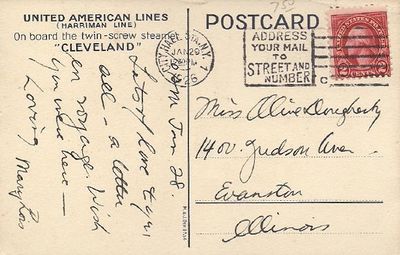 UNITED AMERICAN LINES
(HARRIMAN LINE)
On board the twin-screw steamer
"CLEVELAND"
POSTCARD
75¢
N.Y.
JAN 26
ADDRESS
YOUR MAIL
TO
STREET AND
NUMBER
C
2 CENTS 2
Jan 28.
Lots of love to you
all — a letter
en voyage. Wish
you were here —
Loving
Mary Lois
Miss Aline Dougherty
1400 Judson Ave.
Evanston
Illinois